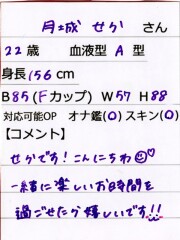 月城 せか さん
22歳 血液型 A 型
身長156cm
B85(Fカップ) W57 H88
対応可能OP オナ鑑(O) スキン(O)
【コメント】
せかです！こんにちわ♡
一緒に楽しいお時間を
過ごせたら嬉しいです!!